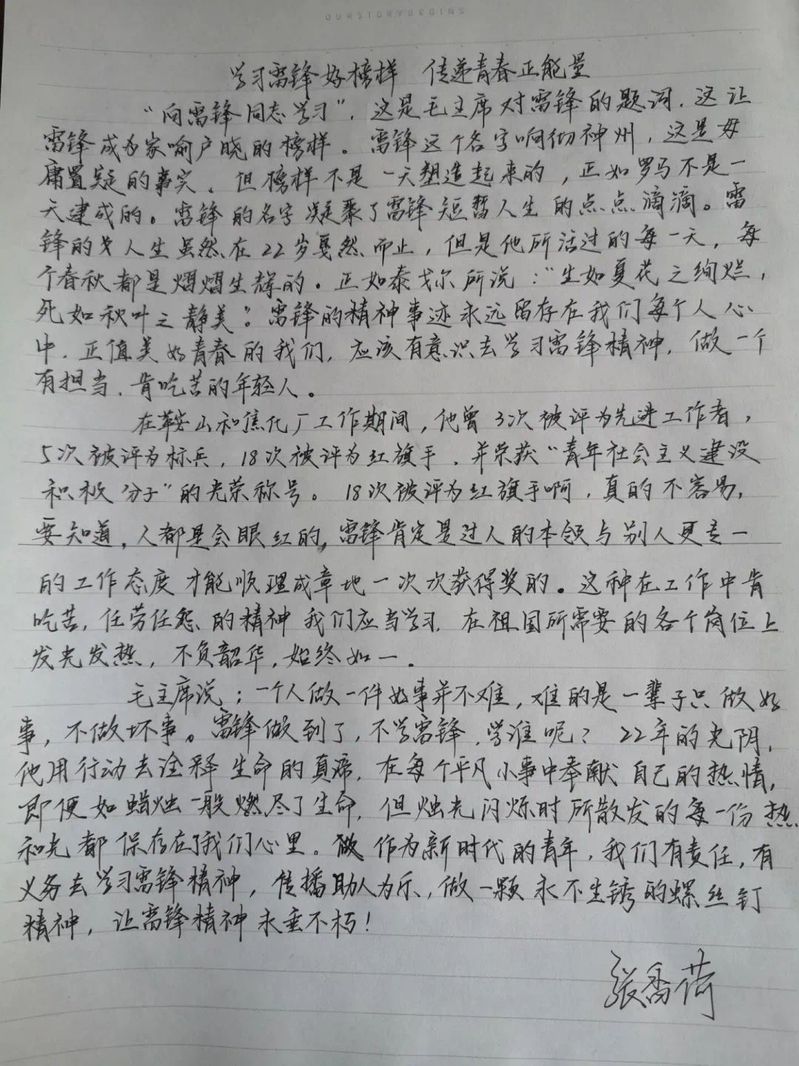 学习雷锋好榜样 传递青春正能量
“向雷锋同志学习”，这是毛主席对雷锋的题词，这让
雷锋成为家喻户晓的榜样。雷锋这个名字响彻神州，这是毋
庸置疑的事实。但榜样不是一天塑造起来的，正如罗马不是一
天建成的。雷锋的名字凝聚了雷锋短暂人生的点点滴滴。雷
锋的人生虽然在22岁戛然而止，但是他所活过的每一天，每
个春秋都是熠熠生辉的。正如泰戈尔所说：“生如夏花之绚烂，
死如秋叶之静美”。雷锋的精神事迹永远留存在我们每个人心
中，正值美好青春的我们，应该有意识去学习雷锋精神，做一个
有担当、肯吃苦的年轻人。
在鞍山和焦化厂工作期间，他曾3次被评为先进工作者，
5次被评为标兵，18次被评为红旗手，并荣获“青年社会主义建设
积极分子”的光荣称号。18次被评为红旗手啊，真的不容易，
要知道，人都是会眼红的，雷锋肯定是过人的本领与别人更专一
的工作态度才能顺理成章地一次次获得奖的。这种在工作中肯
吃苦，任劳任怨的精神我们应当学习，在祖国所需要的各个岗位上
发光发热，不负韶华，始终如一。
毛主席说；一个人做一件好事并不难，难的是一辈子只做好
事，不做坏事。雷锋做到了，不学雷锋，学谁呢？22年的光阴，
他用行动去诠释生命的真谛，在每个平凡小事中奉献自己的热情，
即便如蜡烛一般燃尽了生命，但烛光闪烁时所散发的每一份热
和光都保存在了我们心里。作为新时代的青年，我们有责任，有
义务去学习雷锋精神，传播助人为乐，做一颗永不生锈的螺丝钉
精神，让雷锋精神永垂不朽！
张香荷